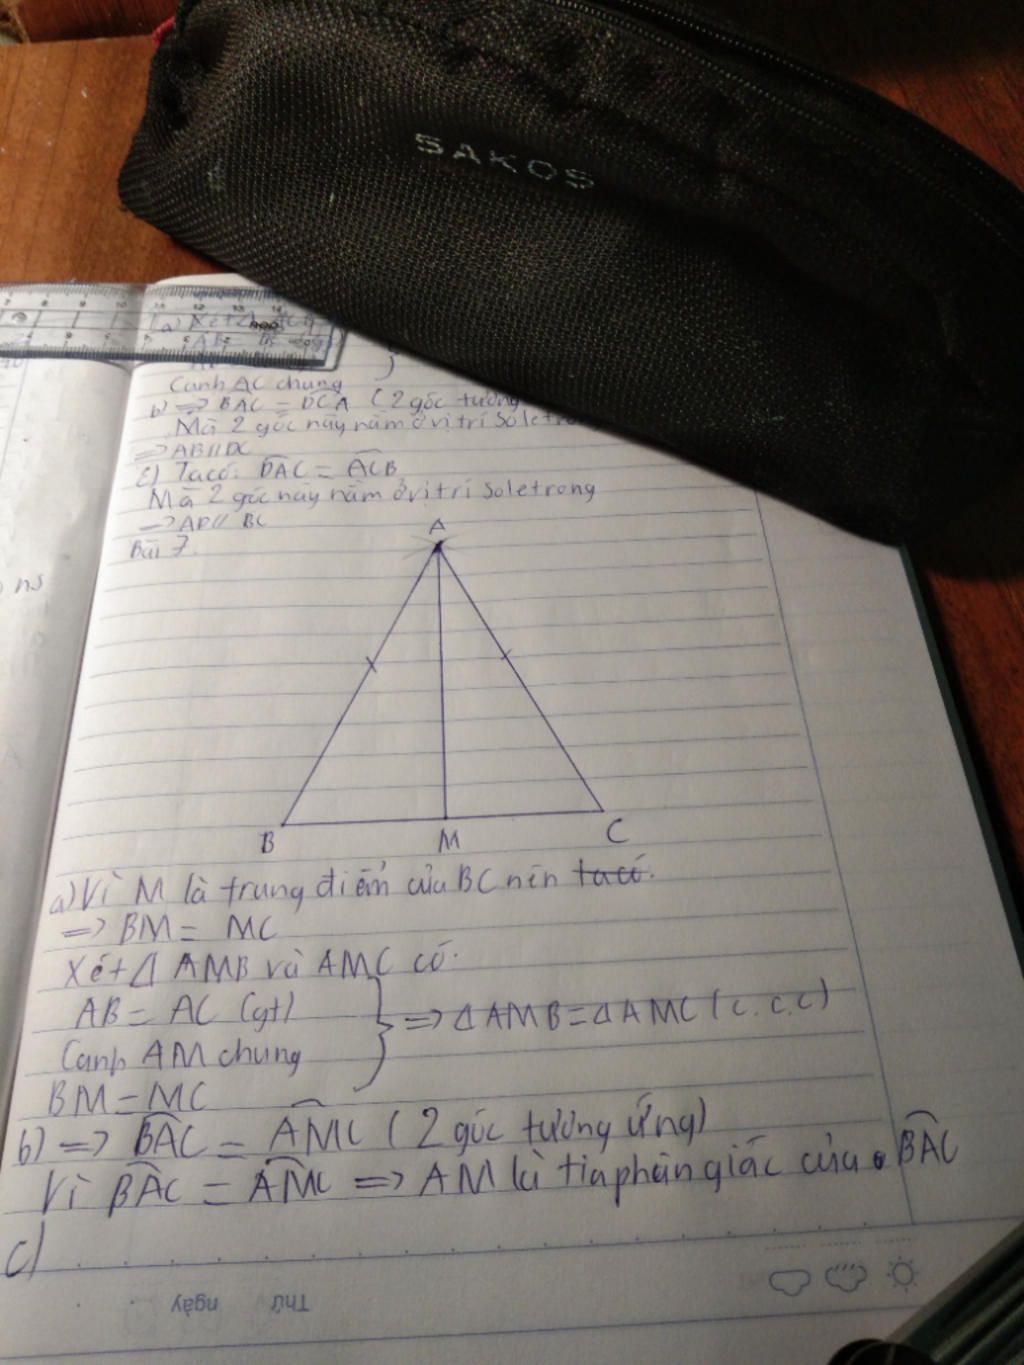 SAKOS
a) Xét
AB =
Cạnh AC chung
b) => BAC = DCA (2 góc tương
Mà 2 góc này nằm ở vị trí so le tro
=> AB // DC
c) Ta có: DAC = ACB
Mà 2 góc này nằm ở vị trí so le trong
=> AD // BC
Bài 7.
A
B M C
a) Vì M là trung điểm của BC nên ta có.
=> BM = MC
Xét Δ AMB và AMC có.
AB = AC (gt)
Cạnh AM chung
BM = MC
=> Δ AMB = Δ AMC (c.c.c)
b) => BAC = AMC (2 góc tương ứng)
Vì BAC = AMC => AM là tia phân giác của BAC
c)
Thứ ngày